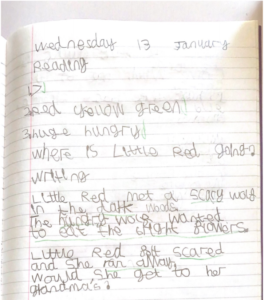 wednesday 13 January
Reading
1)
2) red yellow green
3 huge hungry
where is Little Red going
writing
Little Red met a scary wolf
in the dark woods
the hungry wolf wanted
to eat the bright flowers.
Little Red got scared
and she ran away
would she get to her
grandma's?